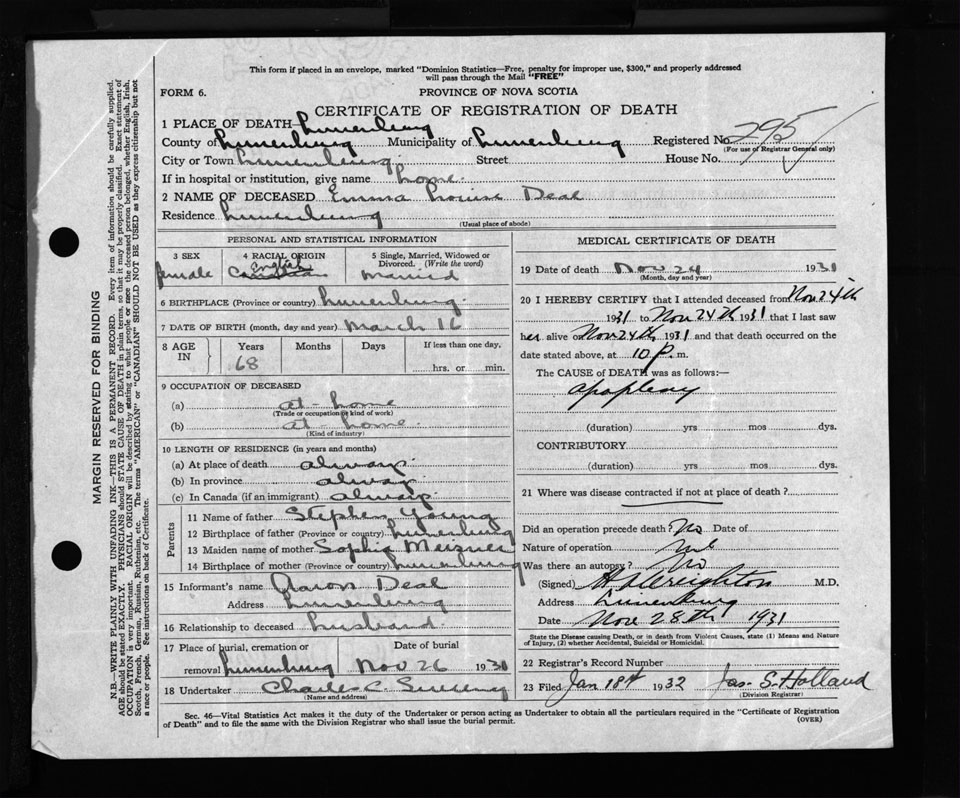 This form if placed in an envelope, marked "Dominion Statistics—Free, penalty for improper use, $300," and properly addressed
will pass through the Mail "FREE"
FORM 6.
PROVINCE OF NOVA SCOTIA
CERTIFICATE OF REGISTRATION OF DEATH
1 PLACE OF DEATH Lunenburg
County of Lunenburg Municipality of Lunenburg Registered No. 295
(For use of Registrar General only)
City or Town Lunenburg. Street House No.
If in hospital or institution, give name home.
2 NAME OF DECEASED Emma Louise Deal
Residence Lunenburg
(Usual place of abode)
PERSONAL AND STATISTICAL INFORMATION
3 SEX
female
4 RACIAL ORIGIN
English
Canadian
5 Single, Married, Widowed or Divorced. (Write the word)
Married
6 BIRTHPLACE (Province or country) Lunenburg.
7 DATE OF BIRTH (month, day and year) March 16
8 AGE IN Years Months Days If less than one day,
68 hrs. or min.
9 OCCUPATION OF DECEASED
(a) at-home
(Trade or occupation or kind of work)
(b) at-home.
(Kind of industry)
10 LENGTH OF RESIDENCE (in years and months)
(a) At place of death always
(b) In province always
(c) In Canada (if an immigrant) always
Parents
11 Name of father Stephen Young
12 Birthplace of father (Province or country) Lunenburg
13 Maiden name of mother Sophia Meisner
14 Birthplace of mother (Province or country) Lunenburg
15 Informant's name Aaron Deal
Address Lunenburg
16 Relationship to deceased husband
17 Place of burial, cremation or Date of burial
removal Lunenburg Nov 26 1931
18 Undertaker Charles C.
(Name and address)
MEDICAL CERTIFICATE OF DEATH
19 Date of death Nov 24 1931
(Month, day and year)
20 I HEREBY CERTIFY that I attended deceased from Nov 24th
1931 to Nov 24th 1931 that I last saw
her alive on Nov 24th 1931 and that death occurred on the
date stated above, at 10 p. m.
The CAUSE of DEATH was as follows:—
apoplexy
(duration) yrs mos dys.
CONTRIBUTORY
(duration) yrs mos dys.
21 Where was disease contracted if not at place of death?
Did an operation precede death? No Date of
Nature of operation nil
Was there an autopsy? No
(Signed) Creighton M.D.
Address Lunenburg
Date Nov 28th 1931
State the Disease causing Death, or in death from Violent Causes, state (1) Means and Nature
of Injury, (2) whether Accidental, Suicidal or Homicidal.
22 Registrar's Record Number
23 Filed Jan 18th 1932 Jas. S. Holland
(Division Registrar)
Sec. 46—Vital Statistics Act makes it the duty of the Undertaker or person acting as Undertaker to obtain all the particulars required in the "Certificate of Registration
of Death" and to file the same with the Division Registrar who shall issue the burial permit. (OVER)
MARGIN RESERVED FOR BINDING
N.B.—WRITE PLAINLY WITH UNFADING INK—THIS IS A PERMANENT RECORD. Every item of information should be carefully supplied.
AGE should be stated EXACTLY. PHYSICIANS should STATE CAUSE OF DEATH in plain terms, so that it may be properly classified. Exact statement of
OCCUPATION is very important. RACIAL ORIGIN will be described by stating to what people or race the deceased person belonged, whether English, Irish,
Scotch, French, German, Russian, Ruthenian, etc. The terms "AMERICAN" or "CANADIAN" SHOULD NOT BE USED as they express citizenship but not
a race or people. See instructions on back of Certificate.